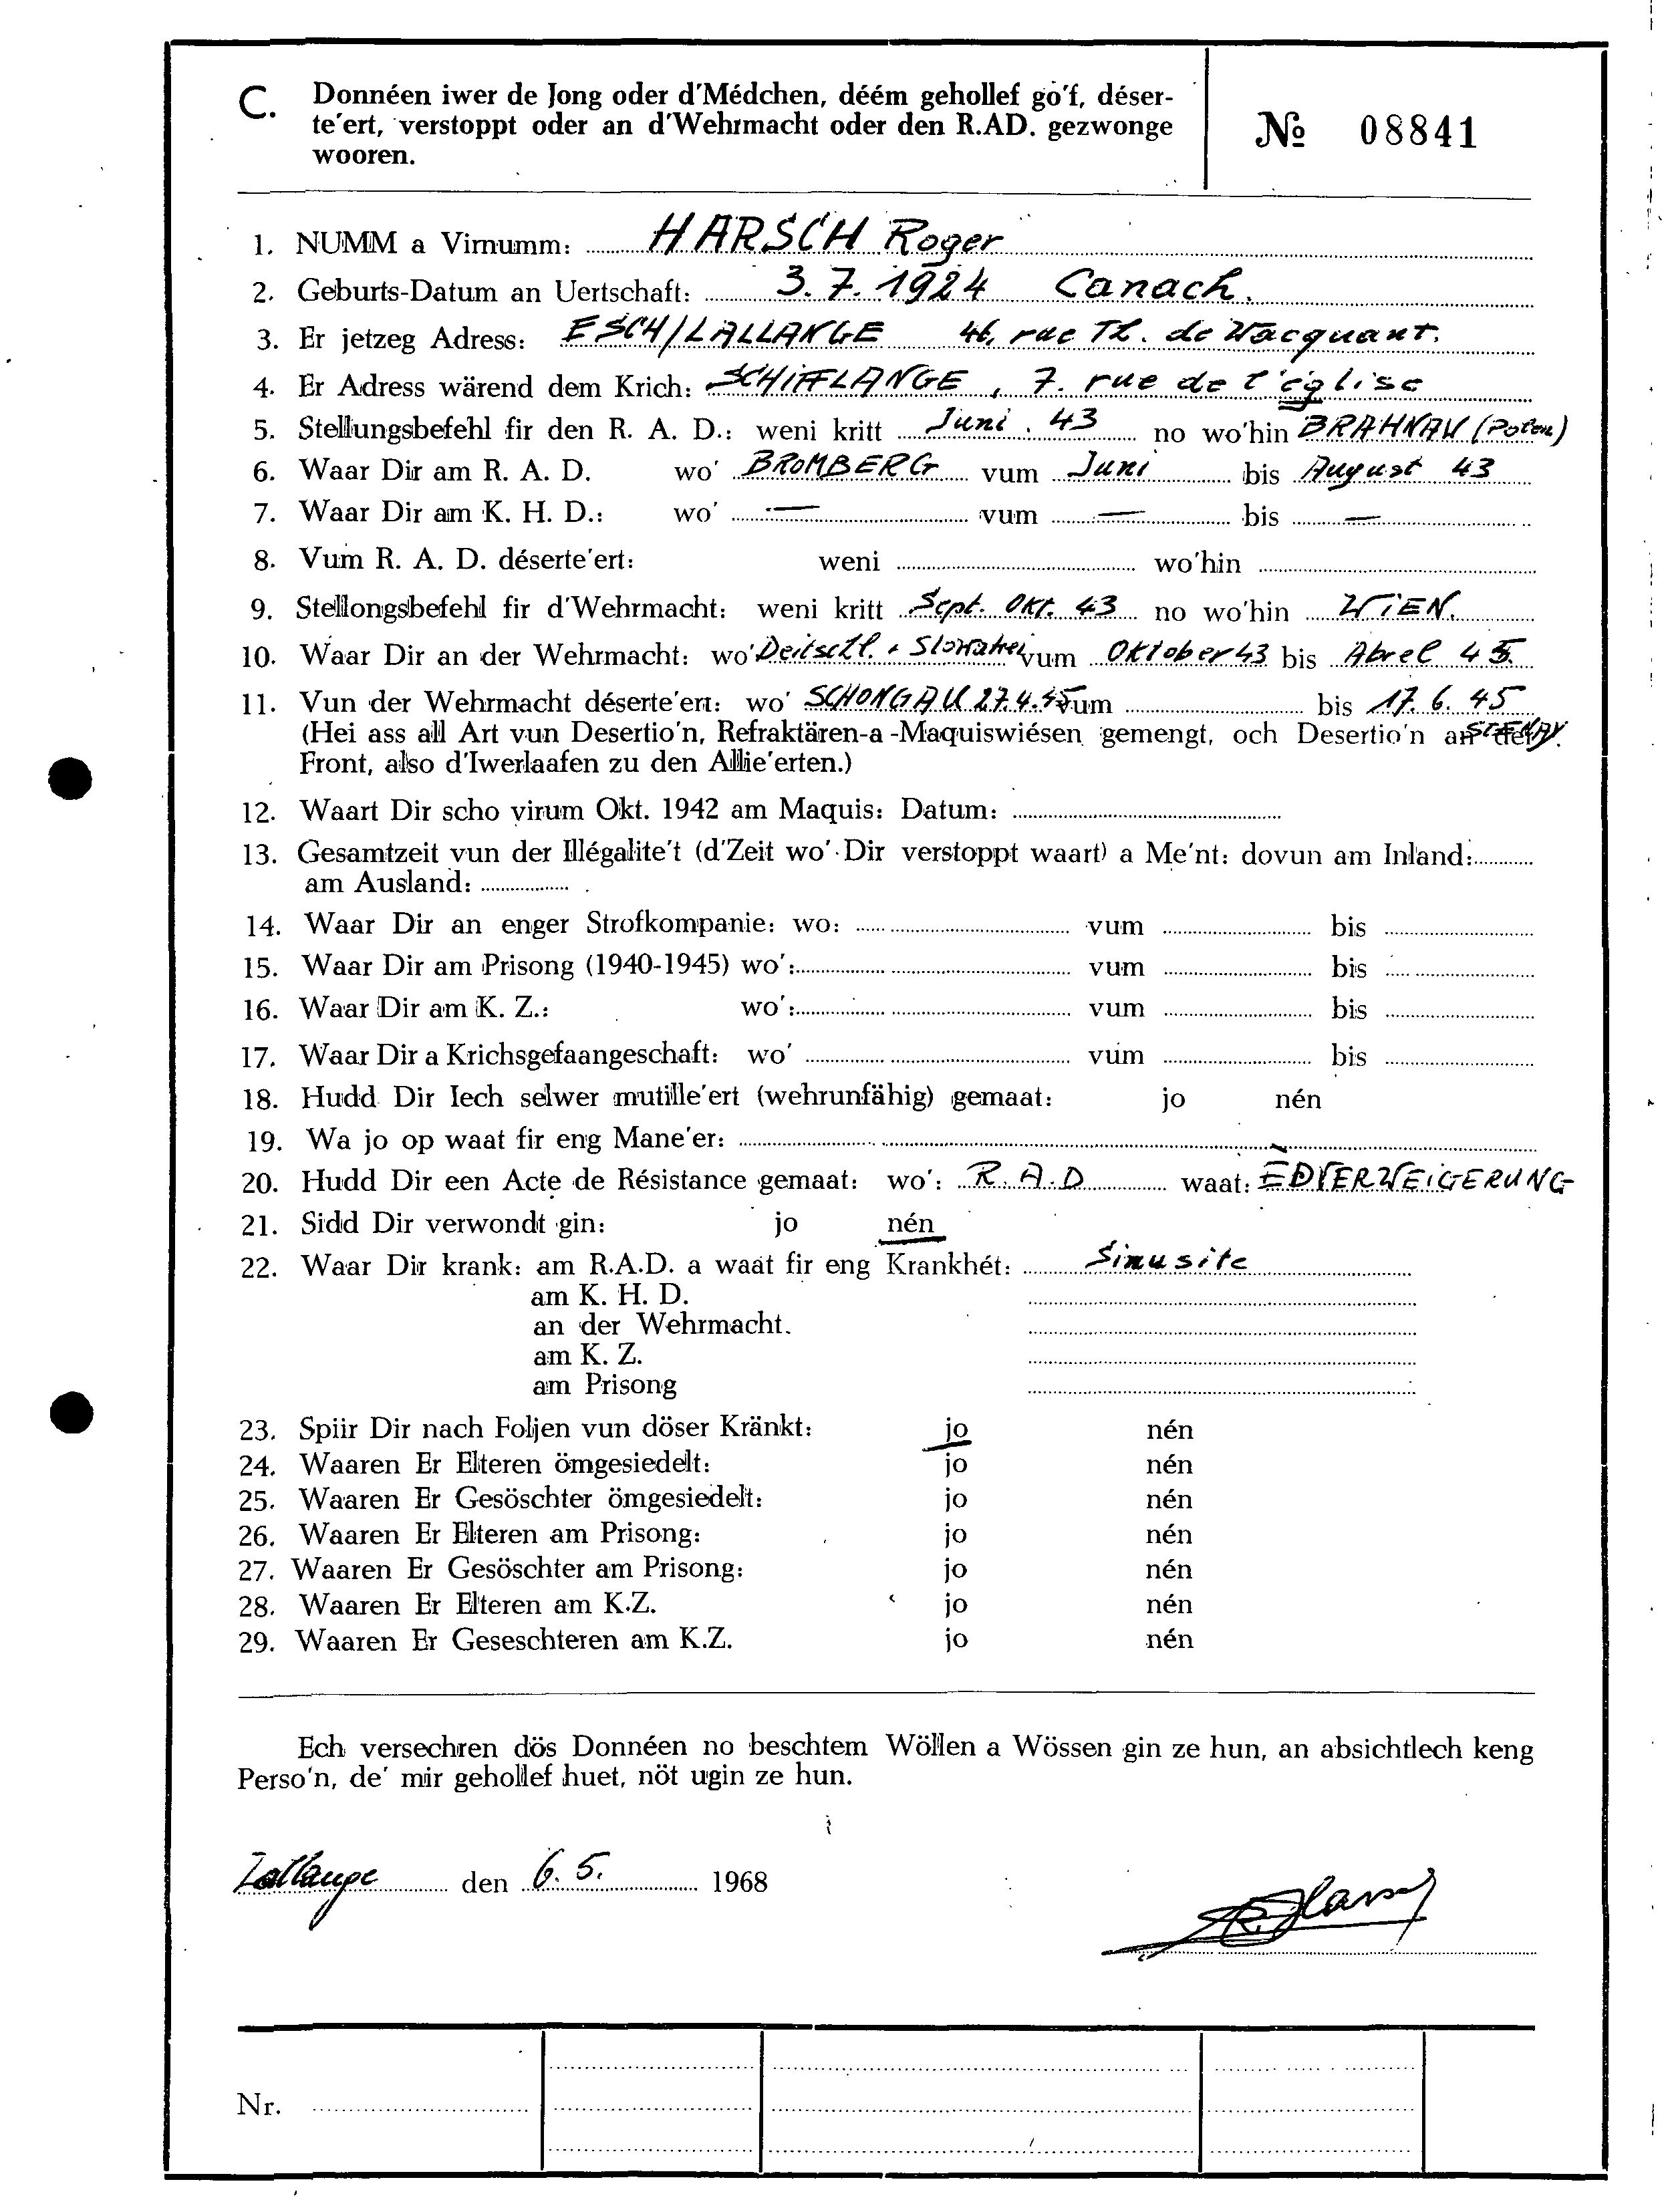 C. Donnéen iwer de Jong oder d'Médchen, déém gehollef go'f, déser-
te'ert, verstoppt oder an d'Wehrmacht oder den R.AD. gezwonge
wooren.
№ 08841
1. NUMM a Virnumm: HARSCH Roger
2. Geburts-Datum an Uertschaft: 3.7.1924 Canach.
3. Er jetzeg Adress: ESCH/LALLANGE 46, rue Th. de Wacquant.
4. Er Adress wärend dem Krich: SCHIFFLANGE, 7. rue de l'église
5. Stellungsbefehl fir den R. A. D.: weni kritt Juni. 43 no wo'hin BRAHNAU (Polen)
6. Waar Dir am R. A. D. wo' BROMBERG vum Juni bis August 43
7. Waar Dir am K. H. D.: wo' — vum — bis —
8. Vum R. A. D. déserte'ert: weni wo'hin
9. Stellongsbefehl fir d'Wehrmacht: weni kritt Sept. Okt. 43 no wo'hin WIEN.
10. Waar Dir an der Wehrmacht: wo' Deitschl. + Slowakei vum Oktober 43 bis Abrel 45.
11. Vun der Wehrmacht déserte'ert: wo' SCHONGAU 27.4.45 vum bis 17.6.45
(Hei ass all Art vun Desertio'n, Refraktären-a-Maquiswiésen gemengt, och Desertio'n an der STENAY.
Front, also d'Iwerlaafen zu den Allie'erten.)
12. Waart Dir scho virum Okt. 1942 am Maquis: Datum:
13. Gesamtzeit vun der Illégalite't (d'Zeit wo' Dir verstoppt waart) a Me'nt: dovun am Inland:
am Ausland:
14. Waar Dir an enger Strofkompanie: wo: vum bis
15. Waar Dir am Prisong (1940-1945) wo': vum bis
16. Waar Dir am K. Z.: wo': vum bis
17. Waar Dir a Krichsgefaangeschaft: wo' vum bis
18. Hudd Dir Iech selwer mutille'ert (wehrunfähig) gemaat: jo nén
19. Wa jo op waat fir eng Mane'er:
20. Hudd Dir een Acte de Résistance gemaat: wo': R.A.D waat: EDVERWEIGERUNG
21. Sidd Dir verwondt gin: jo nén
22. Waar Dir krank: am R.A.D. a waat fir eng Krankhét: Sinusite
am K. H. D.
an der Wehrmacht.
am K. Z.
am Prisong
23. Spiir Dir nach Foljen vun döser Kränkt: jo nén
24. Waaren Er Elteren ömgesiedelt: jo nén
25. Waaren Er Gesöschter ömgesiedelt: jo nén
26. Waaren Er Elteren am Prisong: jo nén
27. Waaren Er Gesöschter am Prisong: jo nén
28. Waaren Er Elteren am K.Z. jo nén
29. Waaren Er Geseschteren am K.Z. jo nén
Ech versechren dös Donnéen no beschtem Wöllen a Wössen gin ze hun, an absichtlech keng
Perso'n, de' mir gehollef huet, nöt ugin ze hun.
Lallange den 6.5. 1968
R. Harsch
Nr.